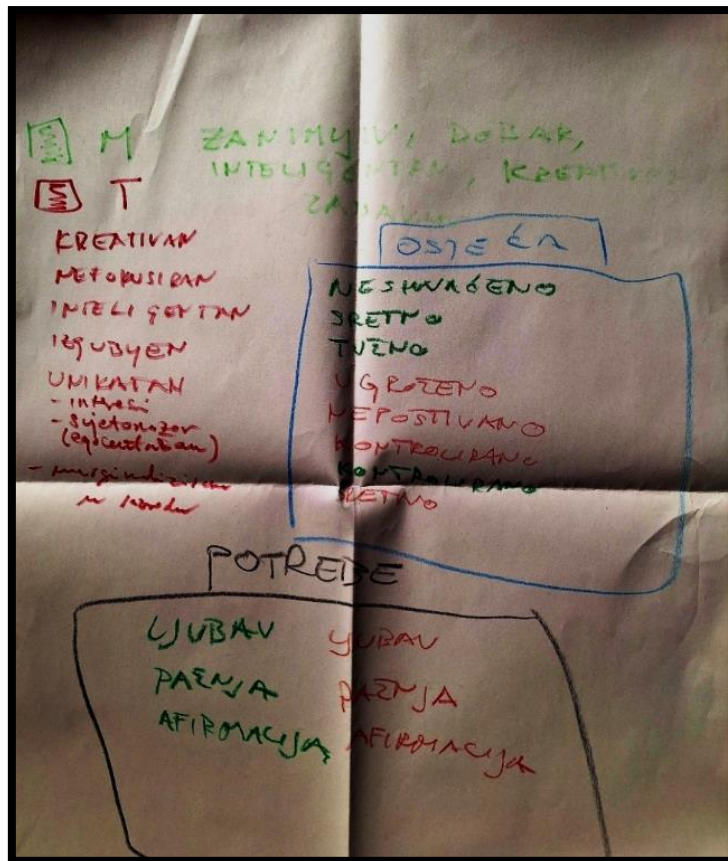 M ZANIMLJIV, DOBAR,
INTELIGENTAN, KREATIVAN,
T
KREATIVAN
NEFOKUSIRAN
INTELIGENTAN
IZGUBLJEN
UNIKATAN
- intresi
- svjetonazor
(egocentričan)
OSJEĆA
NESHVAĆENO
SRETNO
TUŽNO
UGROŽENO
NEPOŠTIVANO
KONTROLIRANO
KONTROLIRANO
SRETNO
POTREBE
LJUBAV LJUBAV
PAŽNJA PAŽNJA
AFIRMACIJA AFIRMACIJA